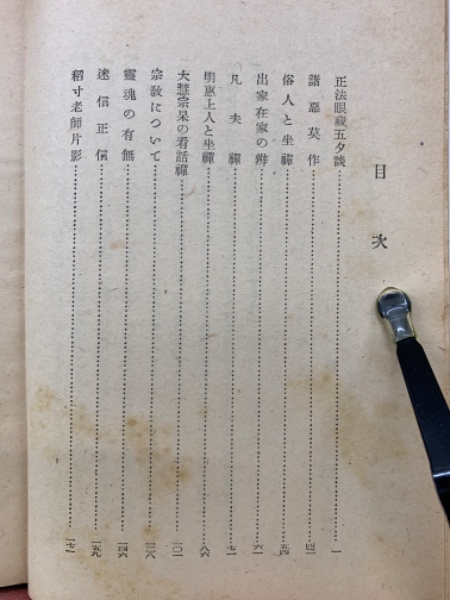 目次
正法眼藏五夕談……一
諸惡莫作……四一
俗人と坐禪……五四
出家在家の辨……六一
凡夫禪……七一
明惠上人と坐禪……八六
大慧宗杲の看話禪……一〇一
宗敎について……一二八
靈魂の有無……一四六
迷信正信……一五九
稻寸老師片影……一七一